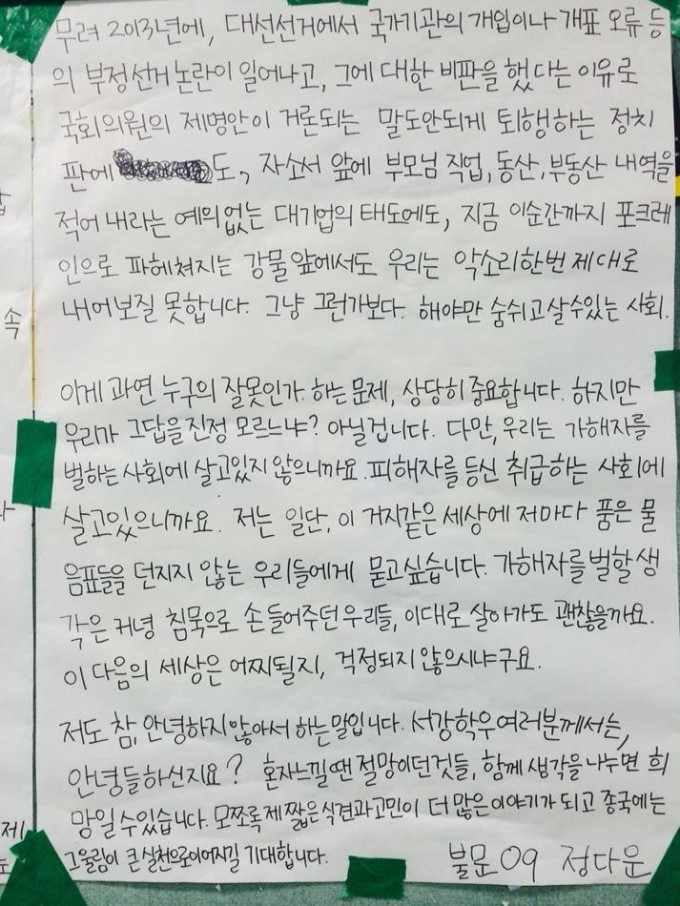 무려 2013년에, 대선선거에서 국가기관의 개입이나 개표 오류 등
의 부정선거 논란이 일어나고, 그에 대한 비판을 했다는 이유로
국회의원의 제명안이 거론되는 말도안되게 퇴행하는 정치
판에 도, 자소서 앞에 부모님 직업, 동산, 부동산 내역을
적어 내라는 예의없는 대기업의 태도에도, 지금 이순간까지 포크레
인으로 파헤쳐지는 강물앞에서도 우리는 악소리한번 제대로
내어보질 못합니다. 그냥 그런가보다. 해야만 숨쉬고살수있는 사회.
이게 과연 누구의 잘못인가. 하는 문제, 상당히 중요합니다. 하지만
우리가 그답을 진정 모르느냐? 아닐겁니다. 다만, 우리는 가해자를
벌하는 사회에 살고있지 않으니까요. 피해자를 등신 취급하는 사회에
살고있으니까요. 저는 일단, 이 거지같은 세상에 저마다 품은 물
음표들을 던지지 않는 우리들에게 묻고싶습니다. 가해자를 벌할 생
각은 커녕 침묵으로 손 들어주던 우리들, 이대로 살아가도 괜찮을까요.
이 다음의 세상은 어찌될지, 걱정되지 않으시냐구요.
저도 참, 안녕하지않아서 하는말입니다. 서강학우여러분께서는,
안녕들하신지요? 혼자느낄땐 절망이던것들, 함께 생각을 나누면 희
망일수있습니다. 모쪼록 제 짧은 식견과고민이 더 많은이야기가 되고 종국에는
그울림이 큰 실천으로이어지길 기대합니다.
불문09 정다운
속
제